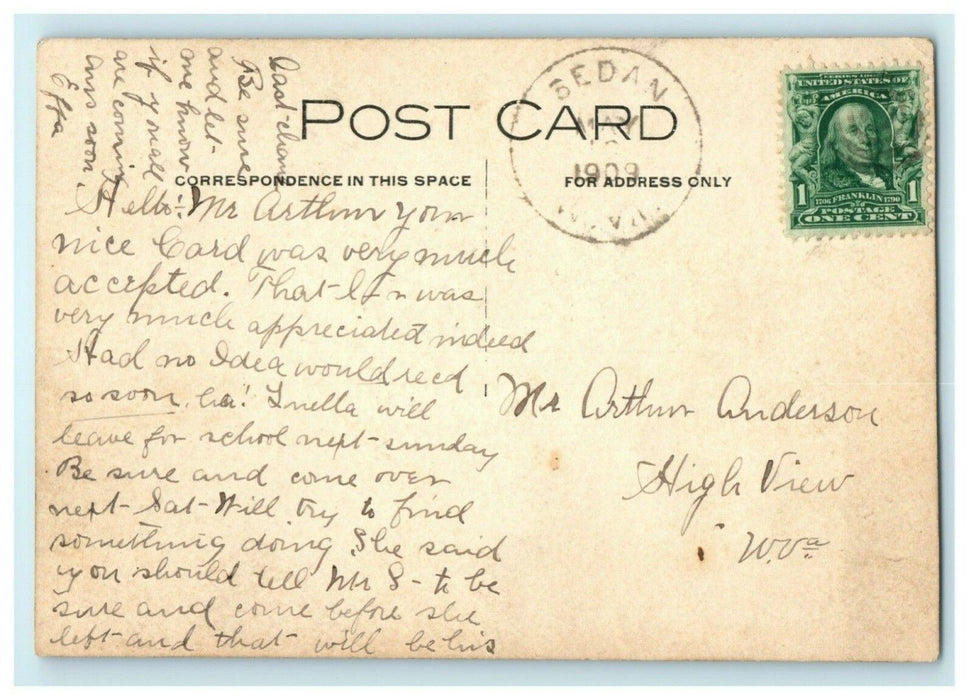 POST CARD
CORRESPONDENCE IN THIS SPACE
FOR ADDRESS ONLY
SEDAN
MAY
1909
W.VA.
SERIES 1902
UNITED STATES OF
AMERICA
1 1
1706 FRANKLIN 1790
POSTAGE
ONE CENT
Hello! Mr Arthur your
nice Card was very much
accepted. That was
very much appreciated indeed
Had no Idea would recd
so soon, ha! Luella will
leave for school next sunday
Be sure and come over
next Sat Will try to find
something doing. She said
you should tell Mr S- to be
sure and come before she
left and that will be his
last chance
Be sure
and let
me know
if you all
are coming
this soon,
Effa
Mr Arthur Anderson
High View
W.Va